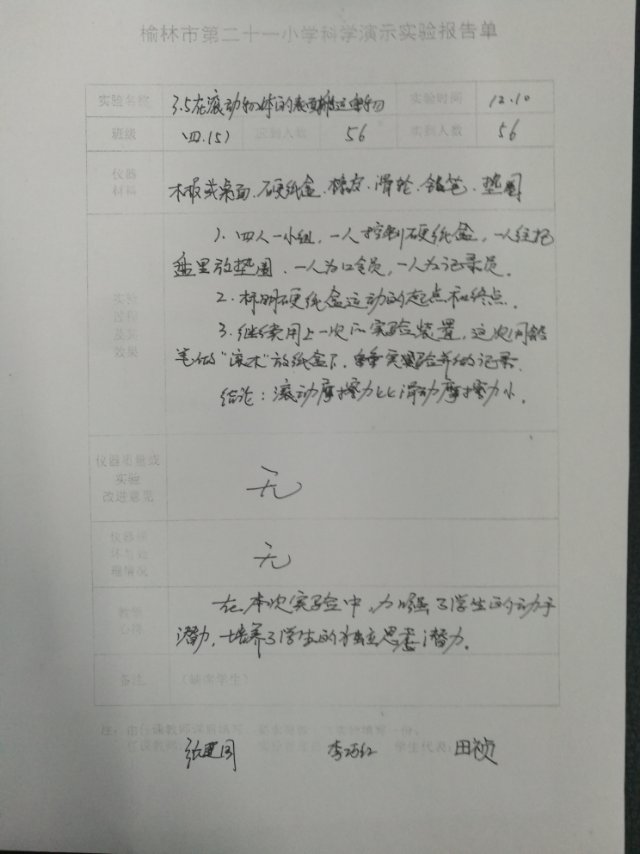 榆林市第二十一小学科学演示实验报告单
实验名称 3.5在滚动物体的表面搬运重物 实验时间 12.10
班级 (四.15) 应到人数 56 实到人数 56
仪器
材料
木板或桌面、硬纸盒、橡皮、滑轮、铅笔、垫圈
实验
过程
及其
效果
1. 四人一小组，一人控制硬纸盒，一人往纸
盘里放垫圈、一人为口令员，一人为记录员。
2. 标明硬纸盒运动的起点和终点。
3. 继续用上一次的实验装置，这次用铅
笔做"滚木"放纸盒下，实验并做记录
结论：滚动摩擦力比滑动摩擦力小。
仪器质量或
实验
改进意见
无
仪器损
坏与处
理情况
无
教学
心得
在本次实验中，加强了学生的动手
潜力，培养了学生的独立思考潜力。
备注 (缺席学生)
注：由任课教师课后填写
任课教师 学生代表：田祯